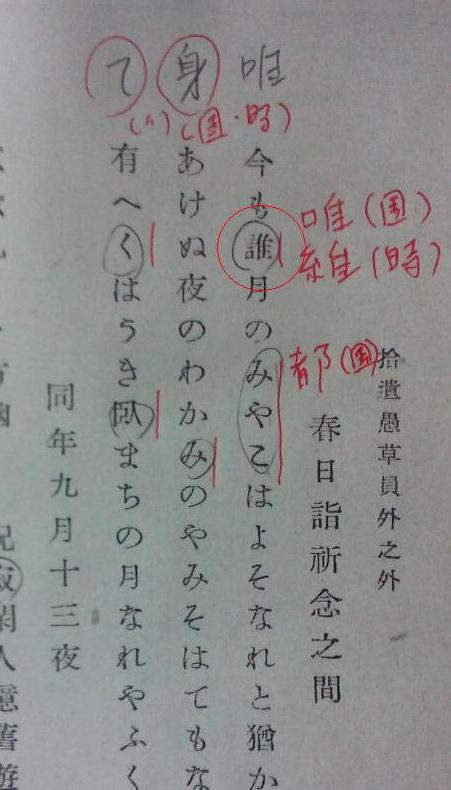 拾遺愚草員外之外
春日詣祈念之間
唯(圖)
維(時)
都(圖)
唯
今も誰月のみやこはよそなれと猶か
身
(圖・時)
あけぬ夜のわかみのやみそはてもな
て
(〃)
有へくはうき臥まちの月なれやふく
同年九月十三夜
寂閑人憶舊遊